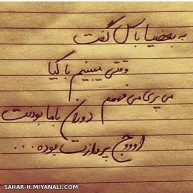 به بعضیا باس گفت
وقتی میبینم با کیا
می پری می فهمم دوران با ما بودنت
اووج پروازت بوده...
SAHAR-H.MIYANALI.COM